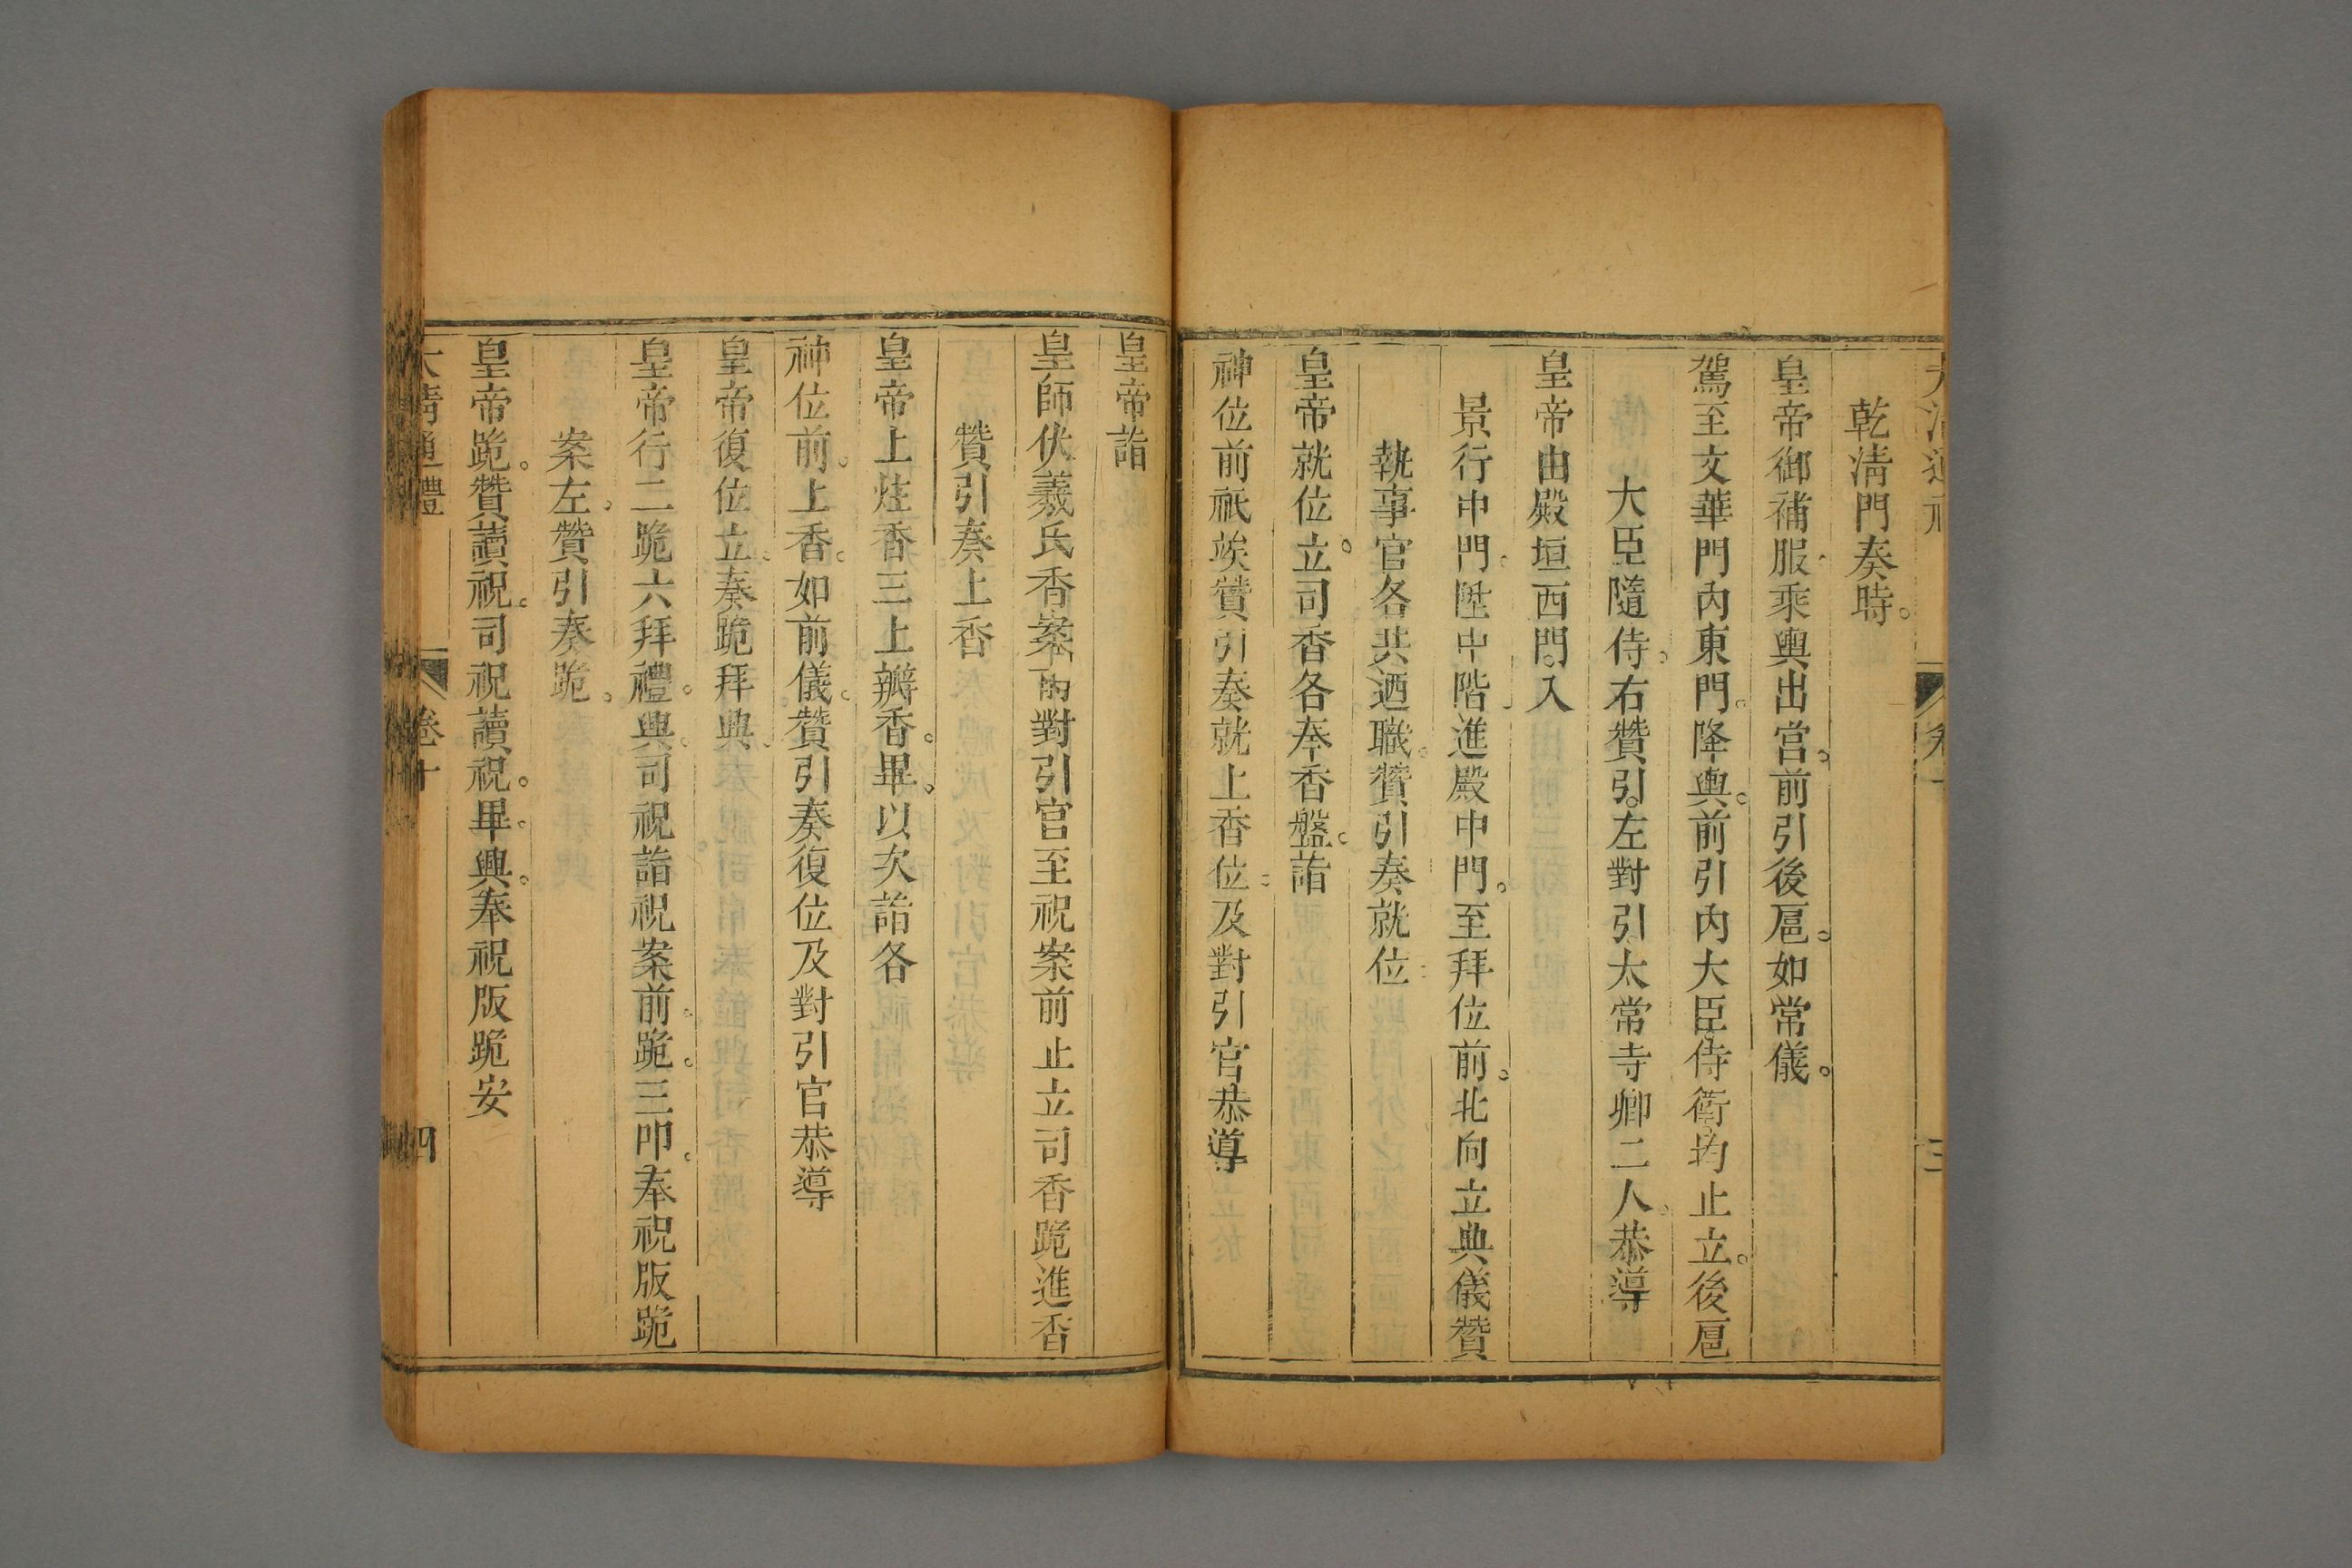 大清通禮 卷十 三
乾淸門奏時。
皇帝御補服。乘輿出宮。前引後扈。如常儀。
駕至文華門內東門。降輿。前引內大臣侍衛均止立。後扈
大臣隨侍。右贊引。左對引太常寺卿二人。恭導
皇帝由殿垣西門。入
景行中門。陞中階進殿中門。至拜位前。北向立典儀贊
執事官各共迺職。贊引奏就位
皇帝就位立。司香各奉香盤。詣
神位前祇竢贊引奏就上香位。及對引官恭導
皇帝詣
皇師伏羲氏香案前對引官至祝案前止立司香跪進香
贊引奏上香
皇帝上炷香三上瓣香。畢。以次詣各
神位前。上香。如前儀。贊引奏復位及對引官恭導
皇帝復位立。奏跪拜興。
皇帝行二跪六拜禮。興。司祝詣祝案前。跪。三叩。奉祝版跪
案左。贊引奏跪。
皇帝跪。贊讀祝。司祝讀祝。畢。興。奉祝版跪安
大淸通禮 卷十 四